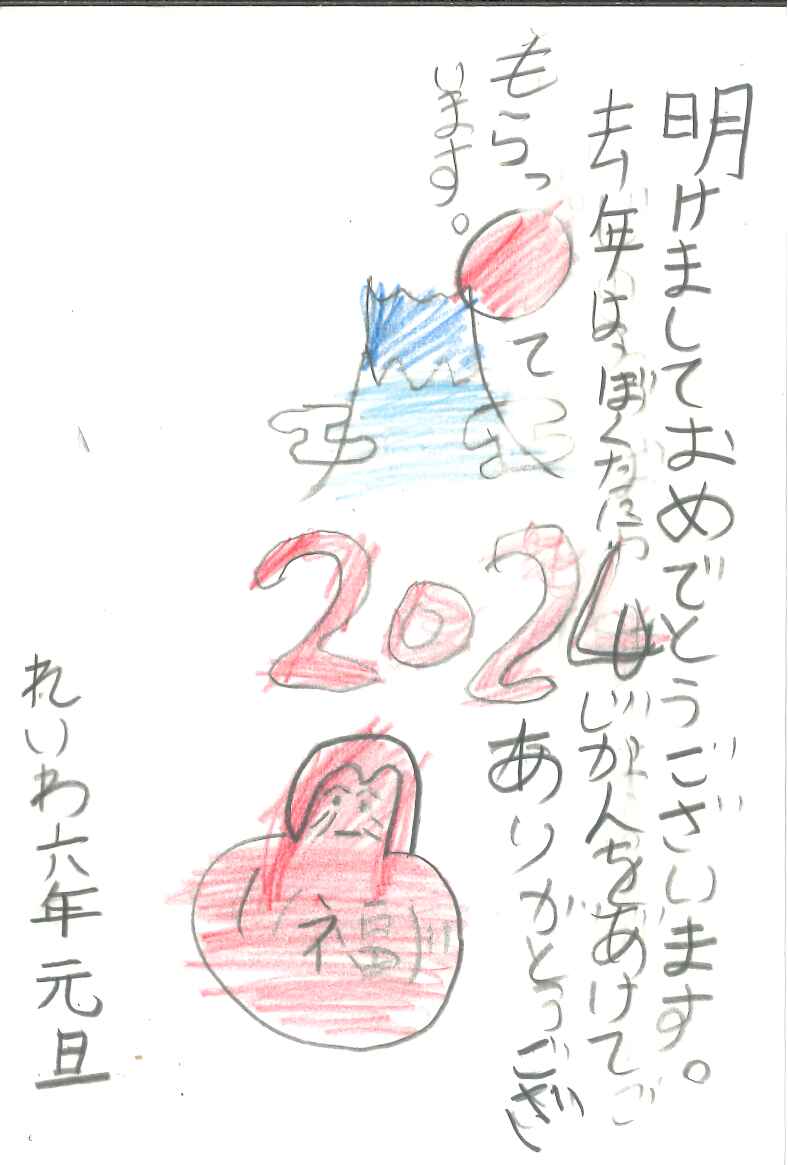 明けましておめでとうございます。
去年は、ぼくたに じが人をあけて
もらって ありがとうござい
います。
2024
福
れいわ六年 元旦